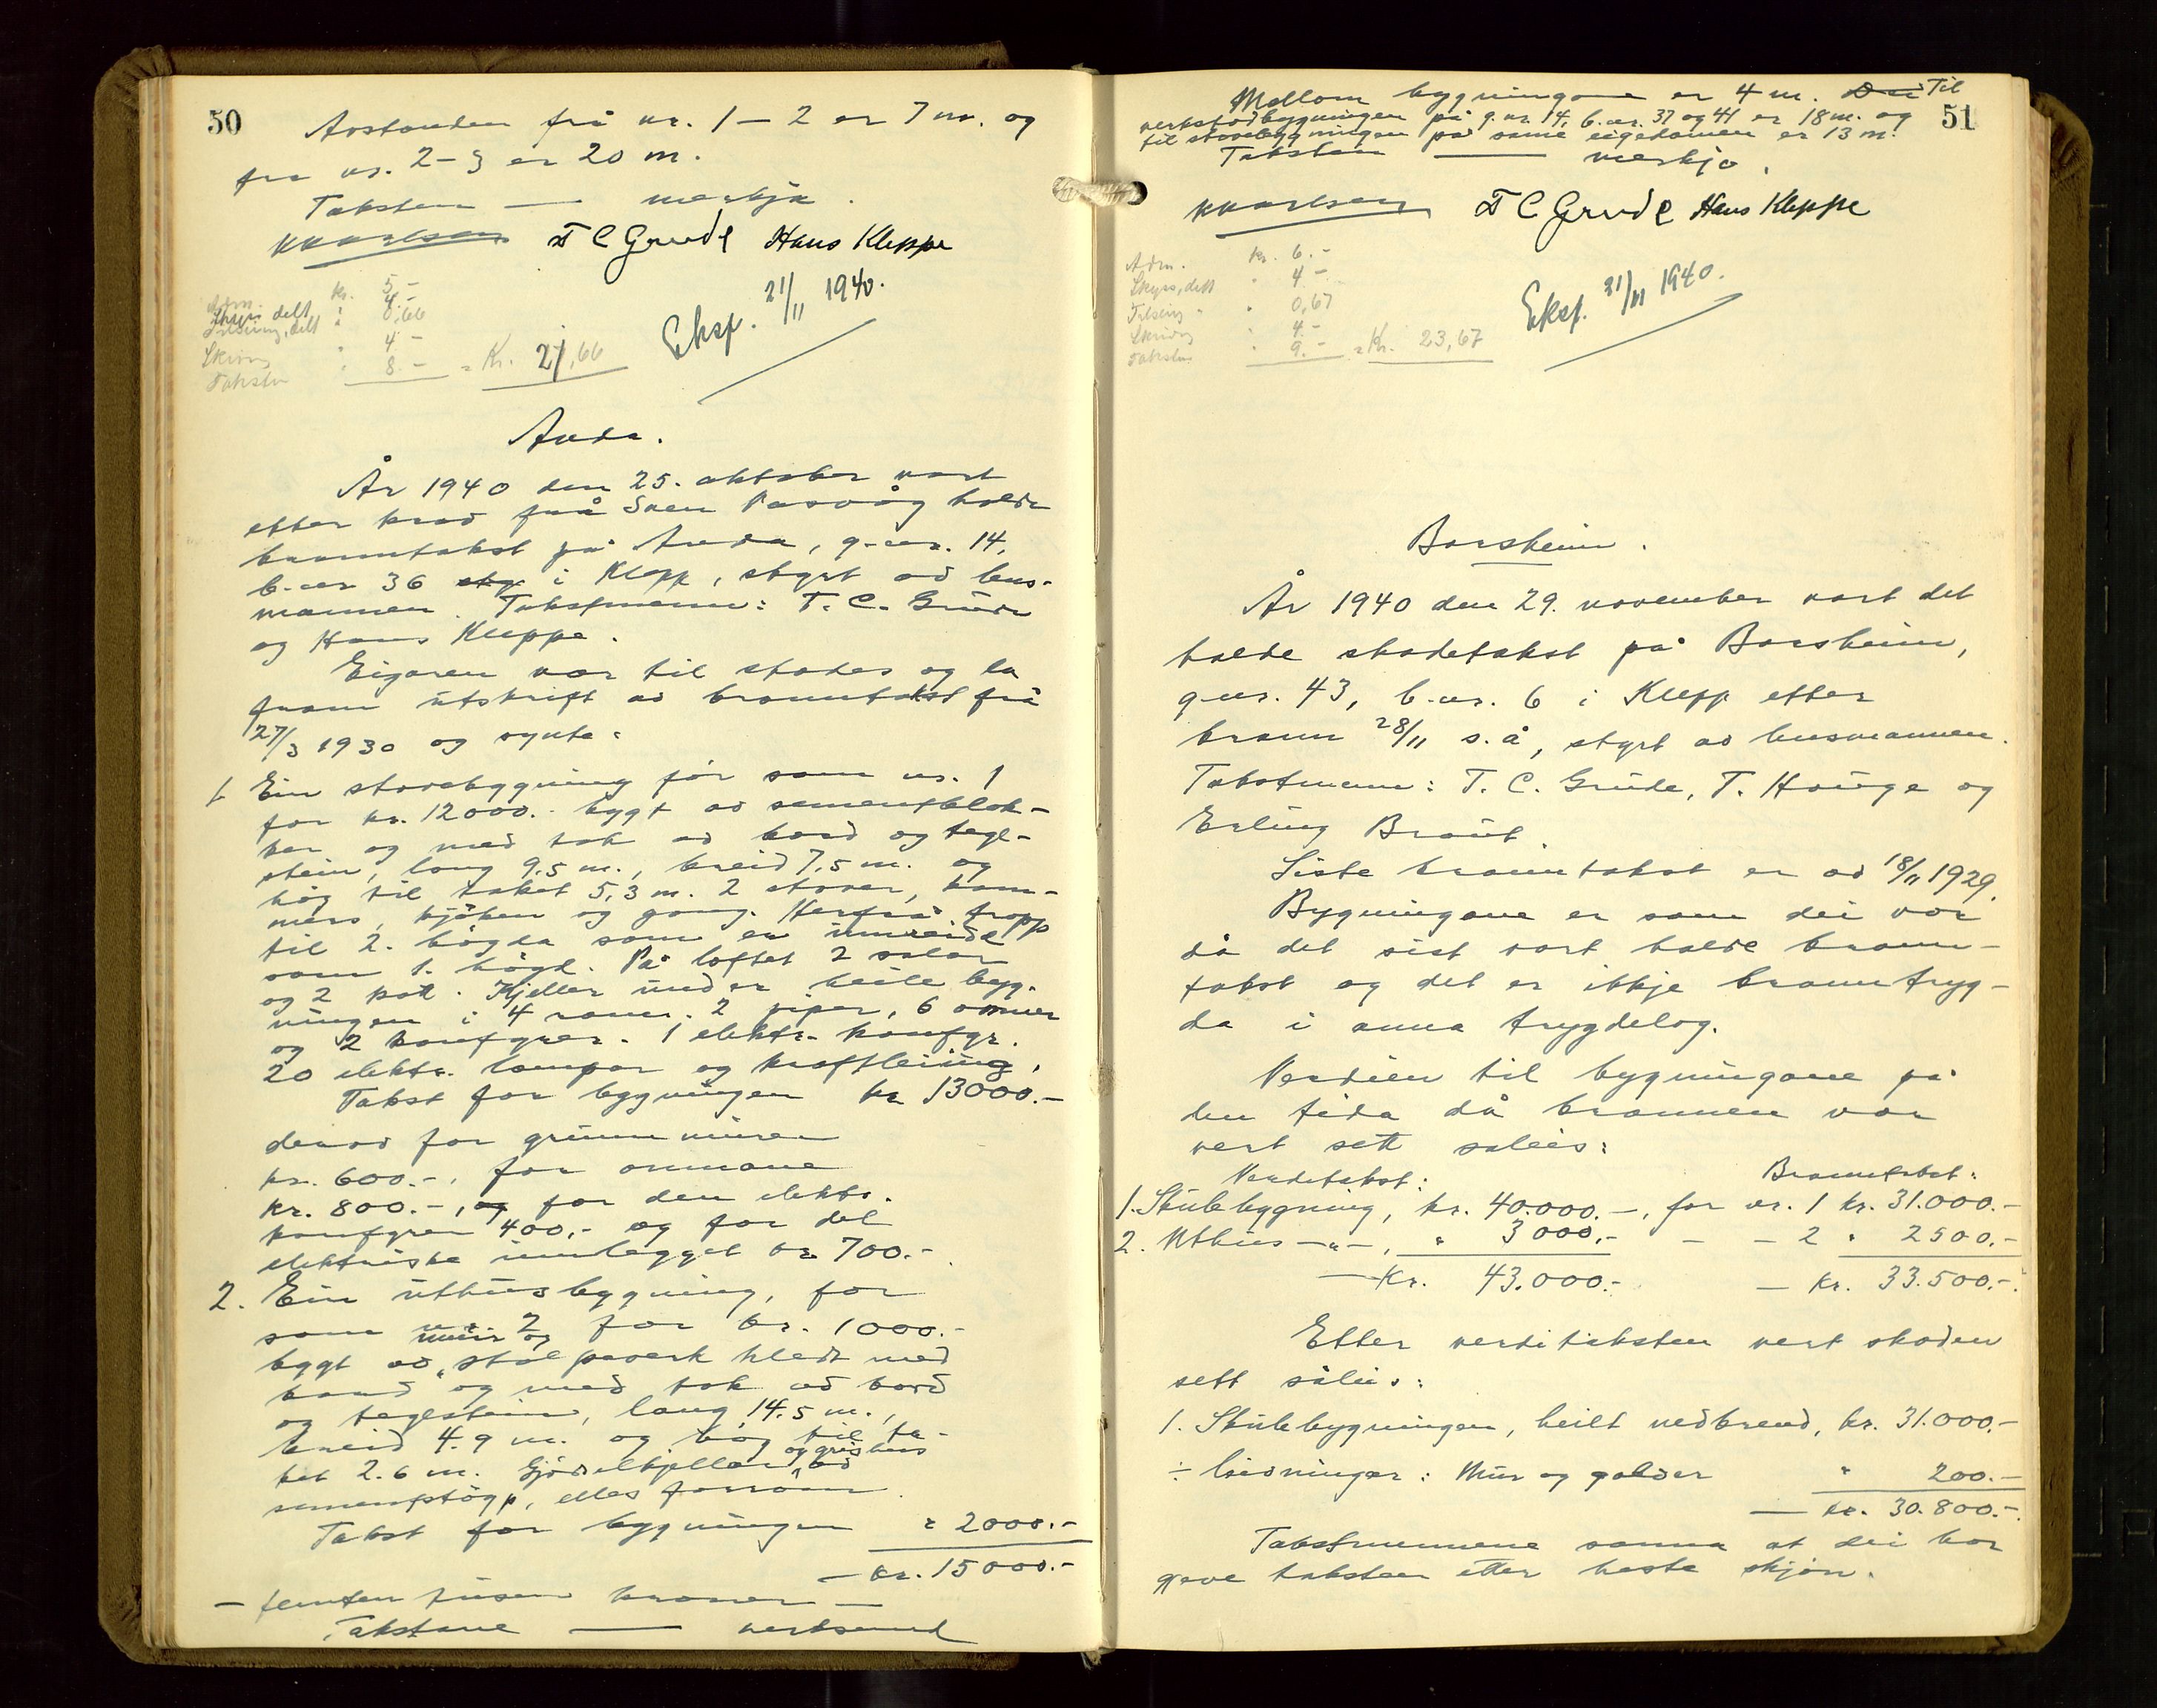 50
Avstanden frå nr. 1 – 2 er 7 m. og
fra nr. 2-3 er 20 m.
Taksten — merkja.
T C Grude Hans Kleppe
Adm. kr. 5.-
Skyss delt " 4.-
Tilseing, delt " 0,66
Skriving " 4.-
Taksten " 8.- = Kr. 21,66
Eksp. 21/11 1940.
Anda.
År 1940 den 25. oktober vart
etter krav frå Sven halde
branntakst på Anda, g.-nr. 14,
b.-nr 36 i Klepp, styrt av lens-
mannen. Takstmenn: T. C. Grude
og Hans Kleppe.
Eigaren var til stades og la
fram utskrift av branntakst frå
27/3 1930 og synte:
1. Ein stovebygning før som nr. 1
for kr. 12000.- bygt av sementblok-
ker og med tak av bord og tegl-
stein, lang 9,5 m., breid 7,5 m. og
høg til taket 5,3 m. 2 stover, kam-
mers, kjøken og gang. Herfrå tropp
til 2. høgda som er innreidd
som 1. høgd. På loftet 2 salar
og 2 kott. Kjeller under heile byg-
ningen i 4 rom. 2 piper, 6 omnar
og 2 komfyrer. 1 elektr. komfyr.
20 elektr. lampor og kraftleiing.
Takst for bygningen kr 13000.-
derav for grunnmuren
kr. 600.-, for omnane
kr. 800.-, og for den elektr.
komfyren 400,- og for det
elektriske innlegget kr 700.-
2. Ein uthusbygning, før
som nr 2 for kr. 1000.-
mur og
bygt av stolpeverk kledt med
bord og med tak av bord
og teglstein, lang 14.5 m.,
breid 4.9 m. og høg til ta-
og grishus
ket 2.6 m. Gjødselkjellar av
sementstøyp, elles forrom.
Takst for bygningen " 2000.-
— kr. 15000.-
— femten tusen kroner —
Takstane — verksemd
51
Mellom bygningane er 4 m. Dei Til
verkstadbygningen på g.nr. 14, b.nr. 37 og 41 er 18 m. og
til stovebygningen på same eigedomen er 13 m.
Taksten — merkja.
T C Grude Hans Kleppe
Adm. kr. 6.-
Skyss, delt " 4.-
Tilseing " " 0,67
Skriving " 4.-
Taksten " 9.- = Kr. 23,67
Eksp. 21/11 1940.
Borsheim.
År 1940 den 29. november vart det
halde skadetakst på Borsheim,
g-nr. 43, b.-nr. 6 i Klepp etter
brann 28/11 s.å, styrt av lensmannen.
Takstmenn: T. C. Grude, T. Hauge og
Erling Braut.
Siste branntakst er av 18/11 1929.
Bygningane er som dei var
då det sist vart halde brann-
takst og det er ikkje branntryg-
da i anna trygdelag.
Verdien til bygningane på
den tida då brannen var
vert sett soleis:
Verdetakst: Branntakst:
1. Stubebygning, kr. 40.000.-, for nr. 1 kr. 31.000.-
2. Uthus -"-, " 3000.- — — 2 " 2500.-
— Kr. 43.000.- — Kr. 33.500.-
Etter verditaksten vert skaden
sett såleis:
1. Stubebygningen, heilt nedbrend, kr. 31.000.-
÷ leivningar: Mur og " 200.-
— kr. 30.800.-
Takstmennene sanna at dei har
gjeve taksten etter beste skjøn.